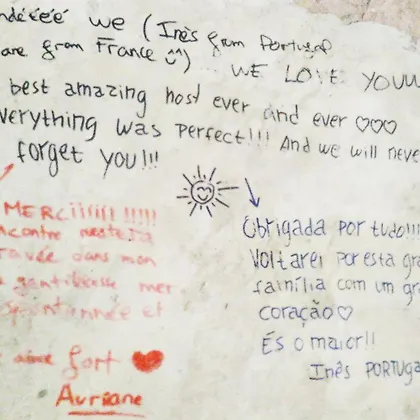 we (Inês from Portugal
are from France ) WE LOVE YOUUU
best amazing host ever and ever ♡♡♡
everything was perfect!!! And we will never
forget you!!!
MERCiiiiii !!!!!
dans mon
gentillesse
et
fort ❤
Auriane
Obrigada por tudo!!!!
Voltarei por esta
família com um
coração♡
És o maior!!
Inês PORTUGAL